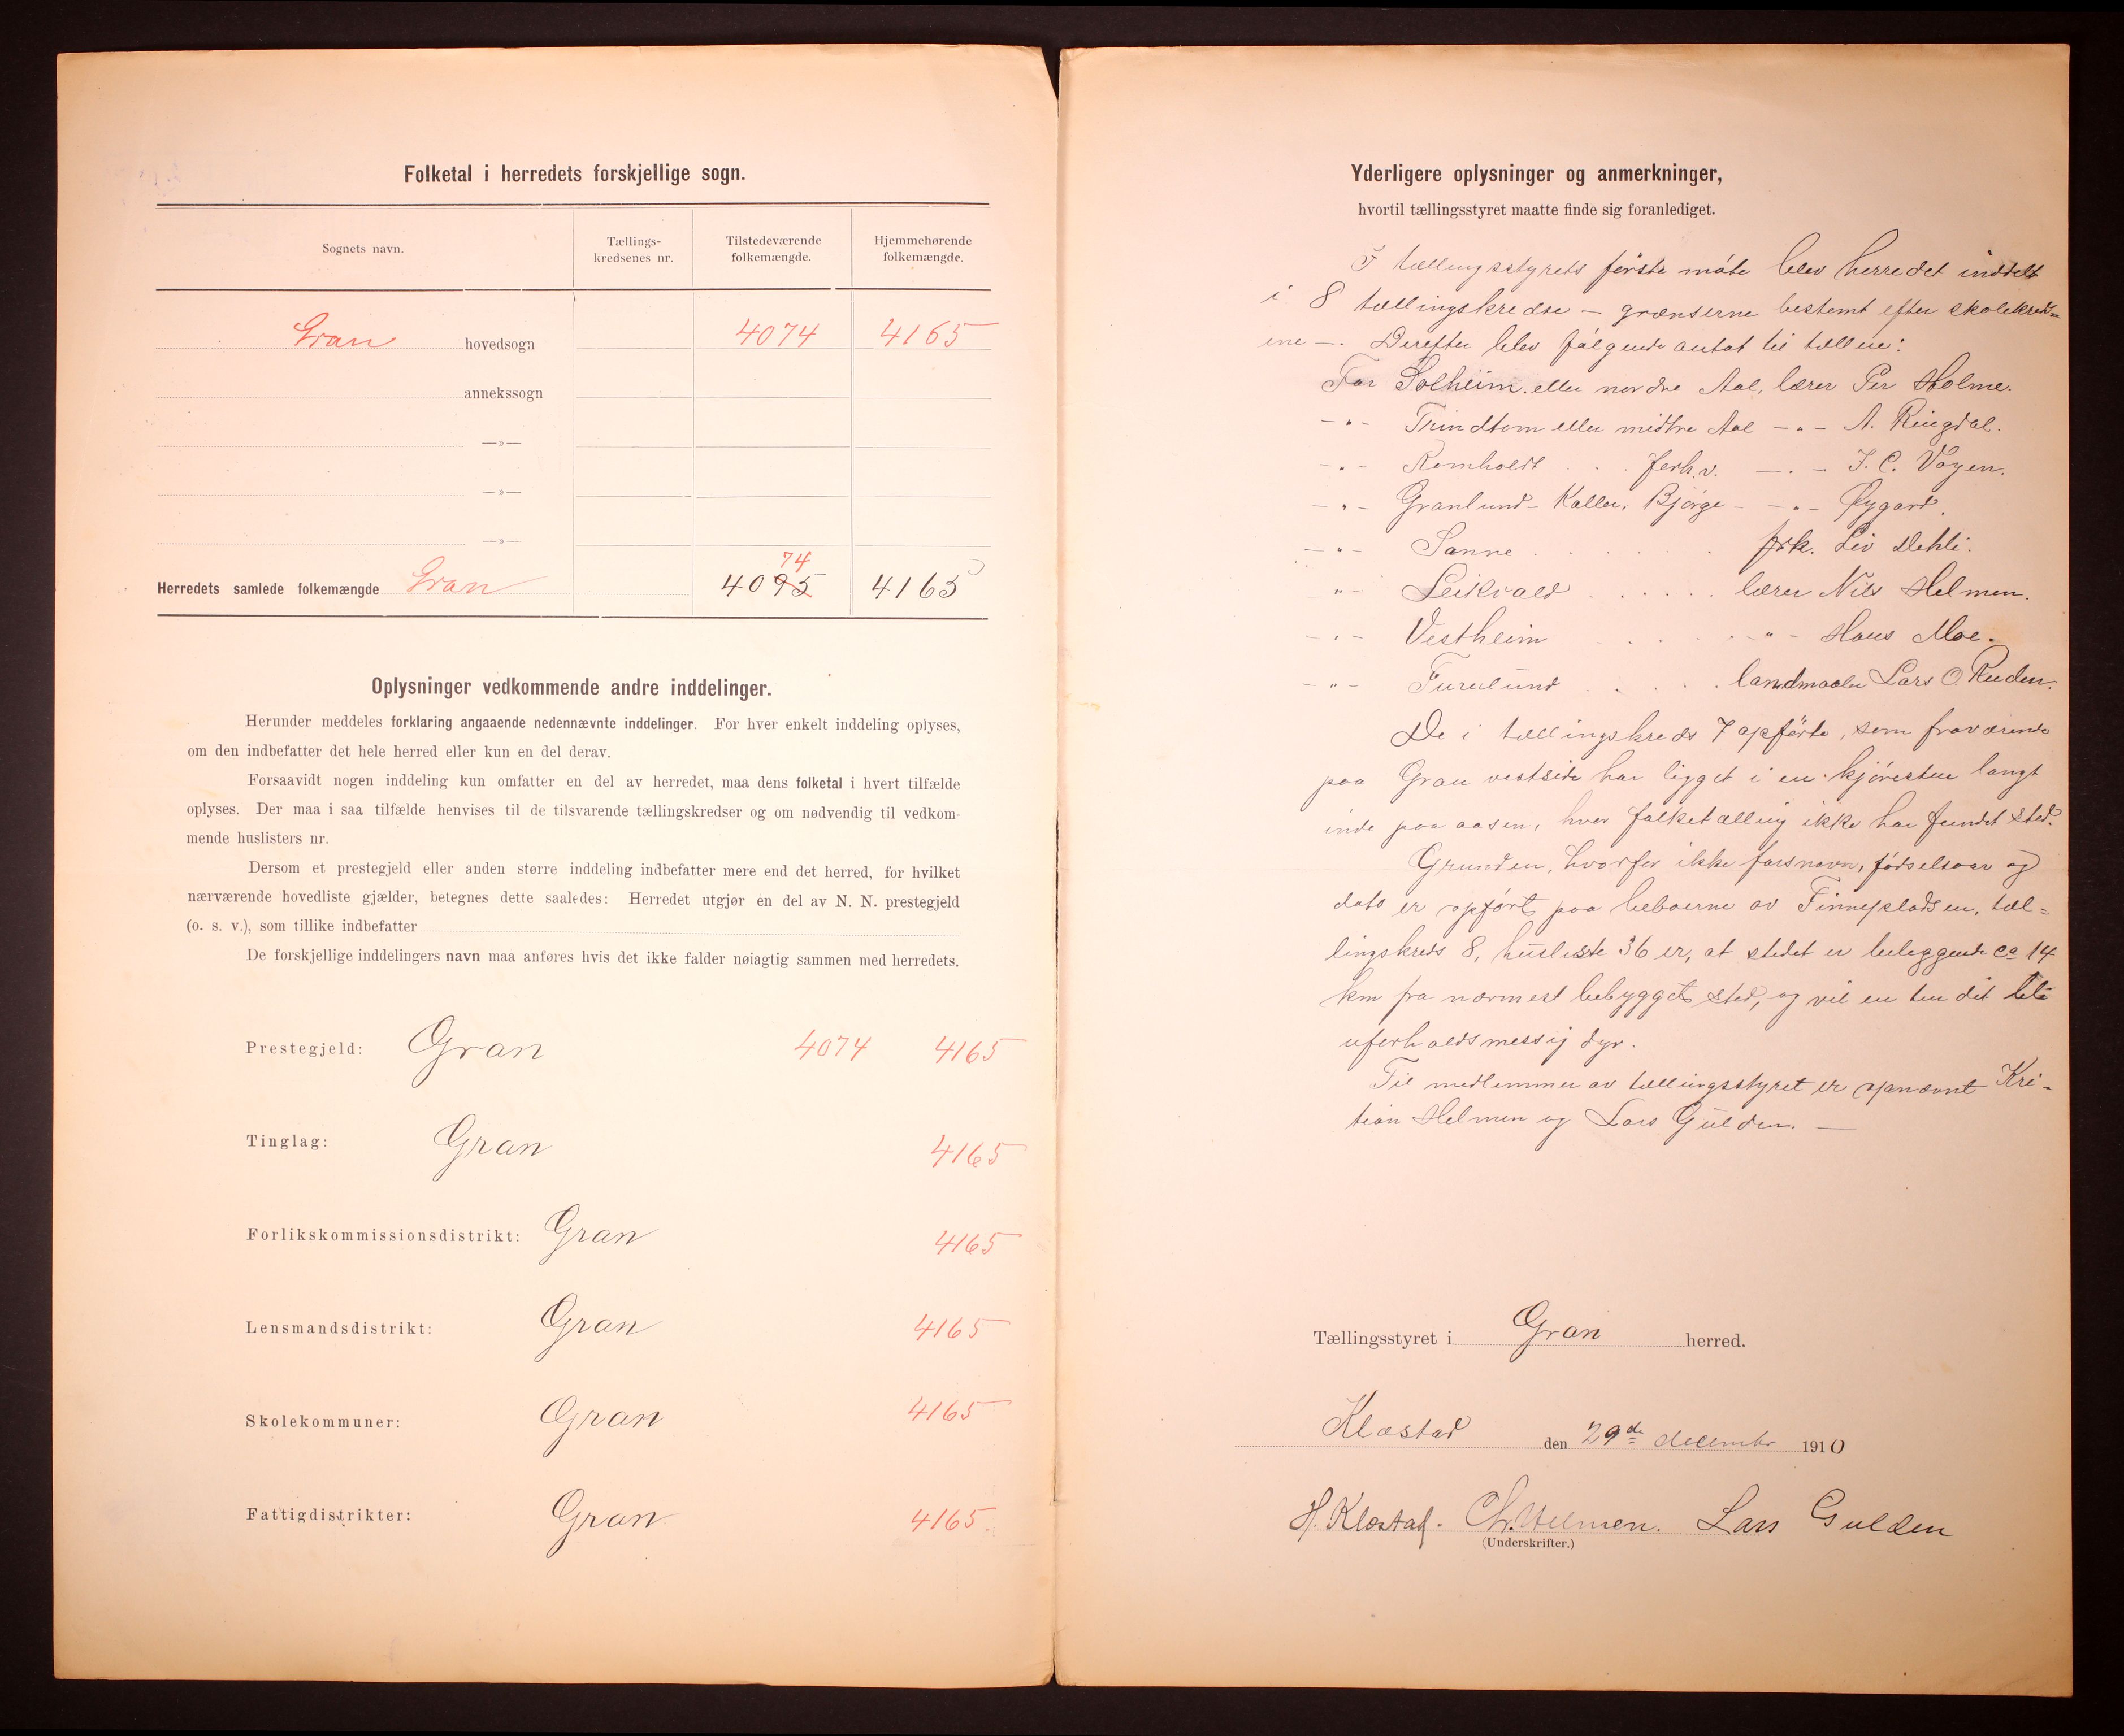 Folketal i herredets forskjellige sogn.
Sognets navn.
Tællings-
kredsenes nr.
Tilstedeværende
folkemængde.
Hjemmehørende
folkemængde.
Gran hovedsogn 4074 4165
annekssogn
—»—
—»—
—»—
74
Herredets samlede folkemængde Gran 4095 4165
Oplysninger vedkommende andre inddelinger.
Herunder meddeles forklaring angaaende nedennævnte inddelinger. For hver enkelt inddeling oplyses,
om den indbefatter det hele herred eller kun en del derav.
Forsaavidt nogen inddeling kun omfatter en del av herredet, maa dens folketal i hvert tilfælde
oplyses. Der maa i saa tilfælde henvises til de tilsvarende tællingskredser og om nødvendig til vedkom-
mende huslisters nr.
Dersom et prestegjeld eller anden større inddeling indbefatter mere end det herred, for hvilket
nærværende hovedliste gjælder, betegnes dette saaledes: Herredet utgjør en del av N. N. prestegjeld
(o. s. v.), som tillike indbefatter
De forskjellige inddelingers navn maa anføres hvis det ikke falder nøiagtig sammen med herredets.
Prestegjeld: Gran 4074 4165
Tinglag: Gran 4165
Forlikskommissionsdistrikt: Gran 4165
Lensmandsdistrikt: Gran 4165
Skolekommuner: Gran 4165
Fattigdistrikter: Gran 4165
Yderligere oplysninger og anmerkninger,
hvortil tællingsstyret maatte finde sig foranlediget.
I tællingsstyrets første møte blev herredet inddelt
i 8 tællingskredse – grænserne bestemt efter skolekreds=
ene –. Derefter blev følgende antat til tællere:
For Solheim eller nordre Aal, lærer Per Holme.
–"– Trindtom eller midtre Aal –"– A. Ringdal.
–"– Romholdt . . . –"– J. C. Vøyen.
–"– Granlund- Bjørge –"– Øygard.
–"– Sanne . . . . . frk. Liv Dehli.
–"– Leikvold . . . . . lærer Nils Helmen.
–"– Vestheim . . . . –"– Hans Moe.
–"– Furulund . . . . landmaaler Lars O Ruden.
De i tællingskreds 7 opførte, som fraværende
paa Gran vestside har ligget i en langt
inde paa aasen, hvor folketælling ikke har fundet sted.
Grunden, hvorfor ikke farsnavn, fødselsaar og
dato er opført paa beboerne av Finnepladsen, tæl=
lingskreds 8, husliste 36 er, at stedet er beliggende ca 14
km fra nærmest bebygget sted, og vil en tur dit
uforholdsmessig dyr.
Til medlemmer av tællingsstyret er opnævnt Kri-
tian Helmen og Lars Gulden. —
Tællingsstyret i Gran herred.
Klæstad den 29de decembr 1910
H. Klæstad. Chr. Helmen. Lars Gulden
(Underskrifter.)